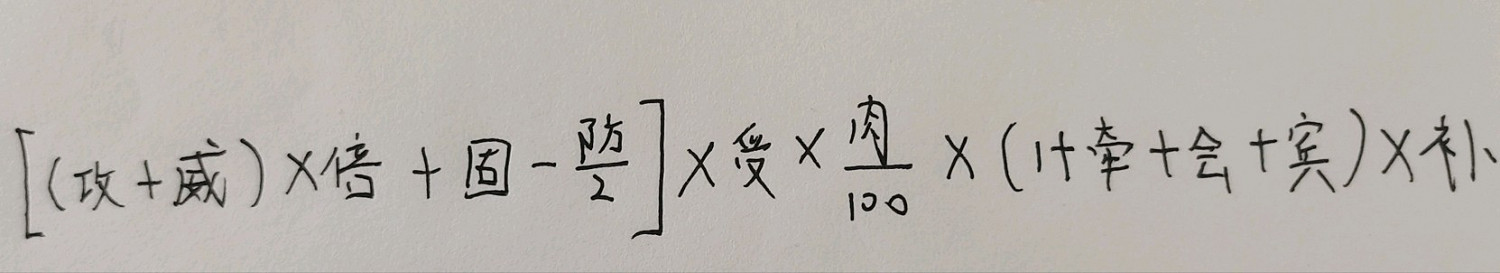 [(攻+威)×倍+固-防/2]×受×肉/100×(1+牵+会+宾)×补